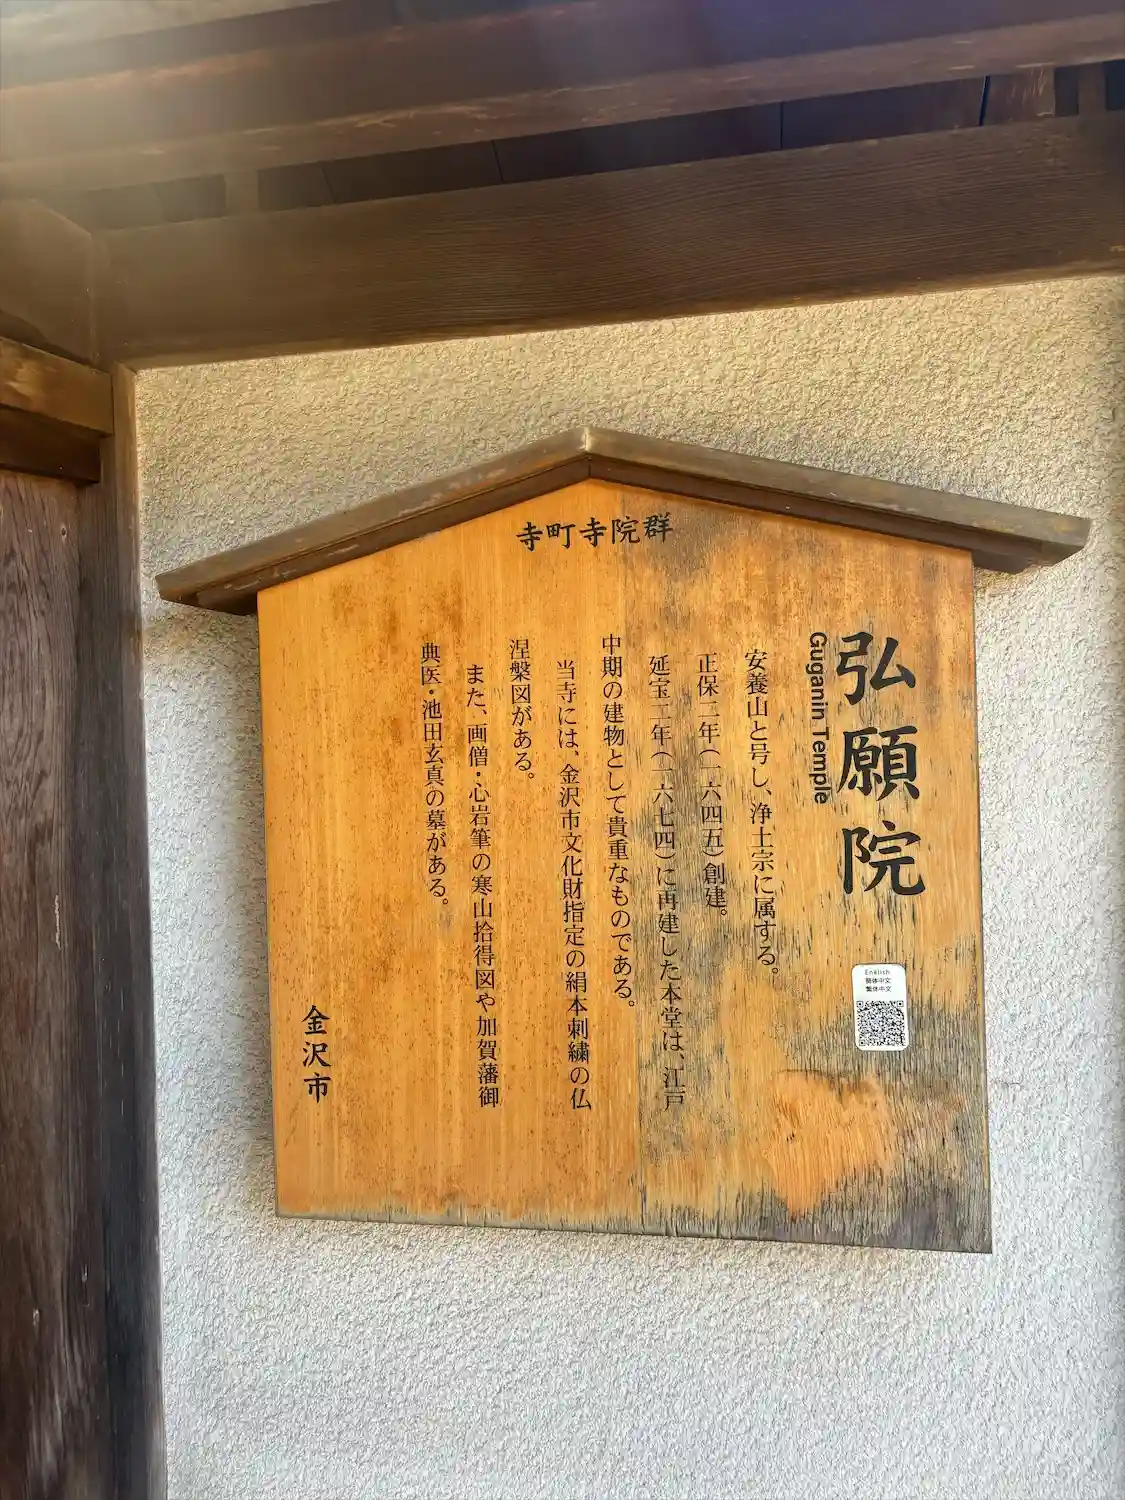 寺町寺院群
弘願院
Guganin Temple
安養山と号し、浄土宗に属する。
正保二年(一六四五)創建。
延宝二年(一六七四)に再建した本堂は、江戸
中期の建物として貴重なものである。
当寺には、金沢市文化財指定の絹本刺繍の仏
涅槃図がある。
また、画僧・心岩筆の寒山拾得図や加賀藩御
典医・池田玄真の墓がある。
金沢市
English
簡体中文
繁体中文